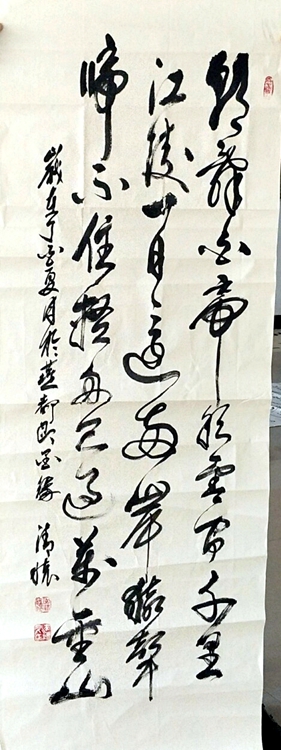 朝辞白帝彩云间千里
江陵一日还两岸猿声
啼不住轻舟已过万重山
岁在丁酉夏月于燕都